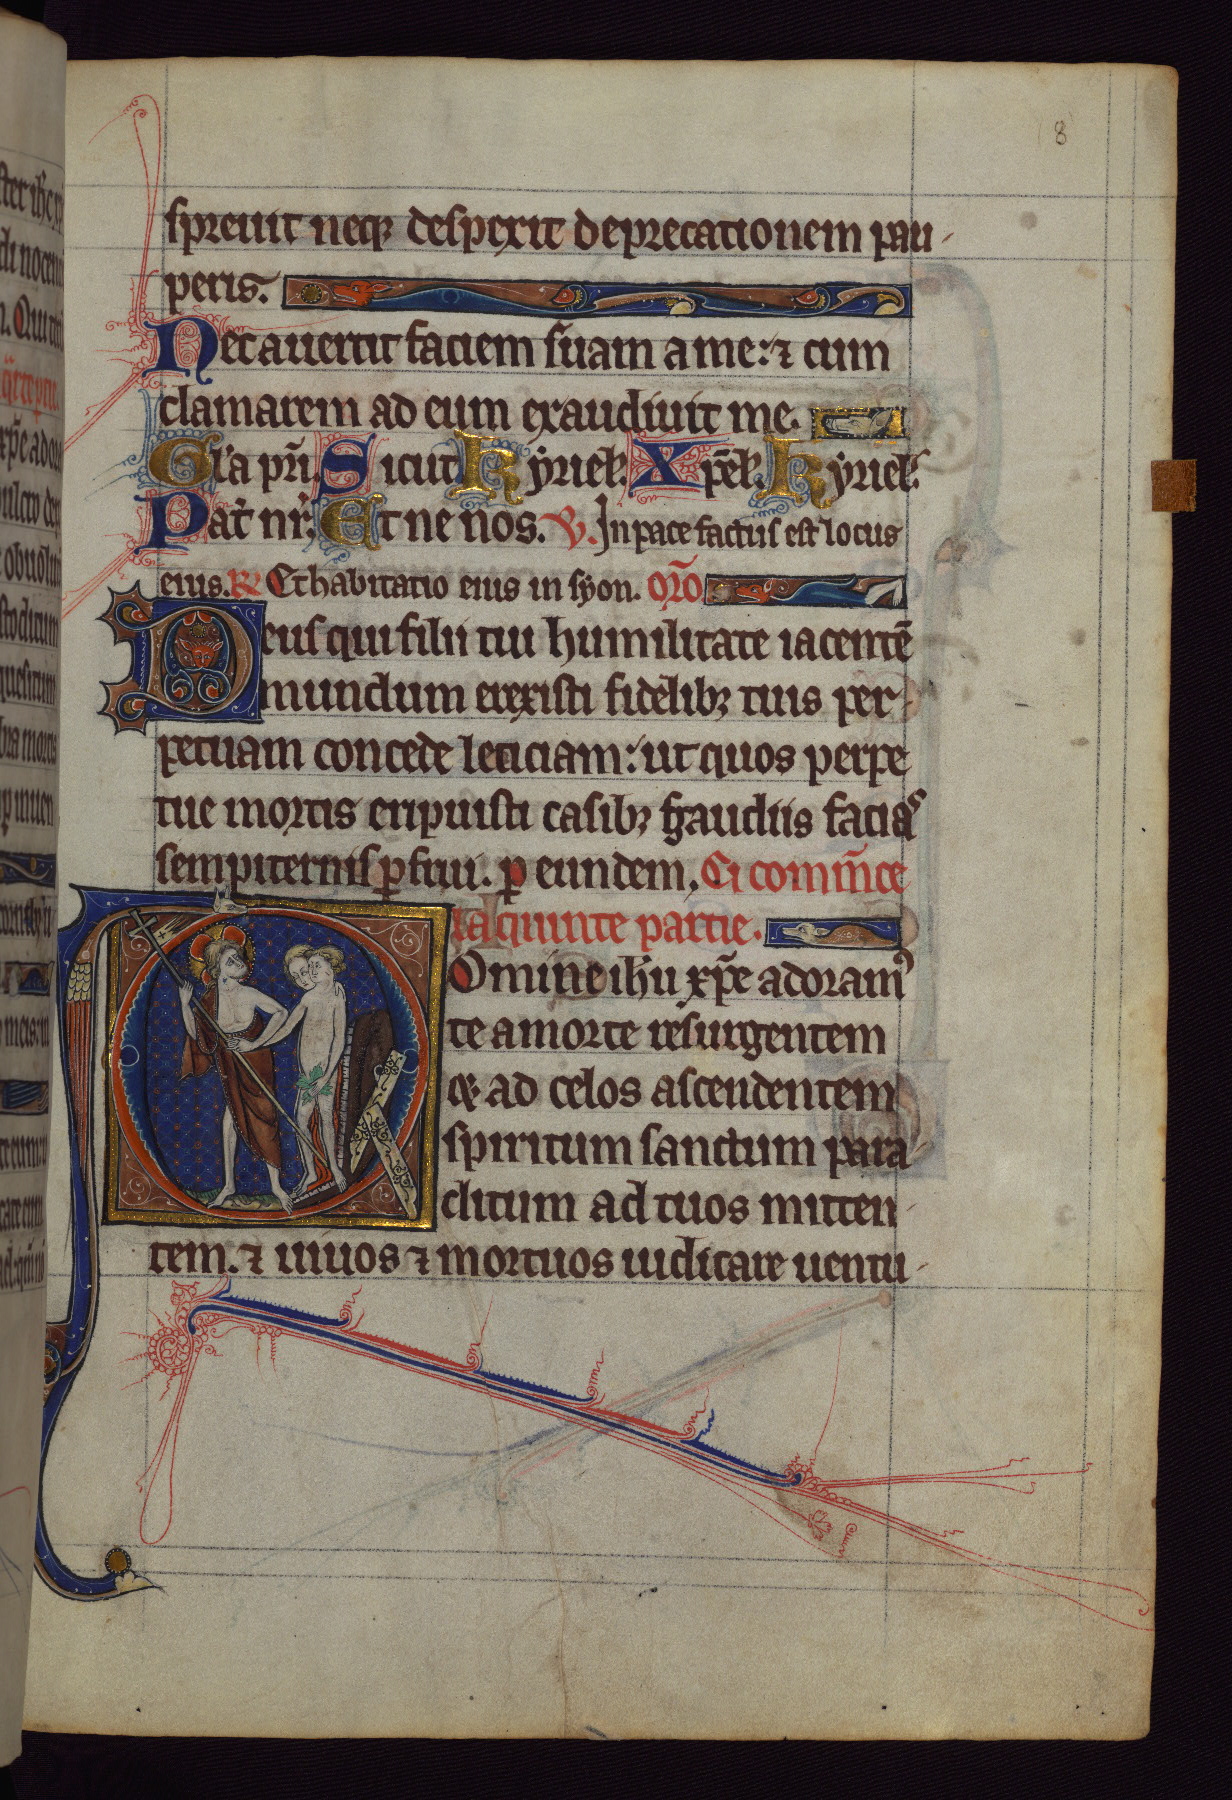 8
spreuit neqꝫ despexit deprecationem pau-
peris.
Nec auertit faciem suam a me: ⁊ cum
clamarem ad eum exaudiuit me.
Gl'a pr̄i. Sicut Kyriel'. Xp̄el'. Kyriel'.
Pat̄ nr̄. Et ne nos. V. In pace factus est locus
eius. R Et habitatio eius in syon. Or̄o
Deus qui filii tui humilitate iacentē
mundum erexisti fidelibꝫ tuis per-
petuam concede leticiam: ut quos perpe
tue mortis eripuisti casibꝫ gaudiis facias
sempiternis ꝑfrui. ꝑ eundem. Ci comm̄ce
la quinte partie.
Domine ihu xp̄e adoramꝰ
te a morte resurgentem
⁊ ad celos ascendentem
spiritum sanctum para-
clitum ad tuos mitten-
tem. ⁊ uiuos ⁊ mortuos iudicare uentu-